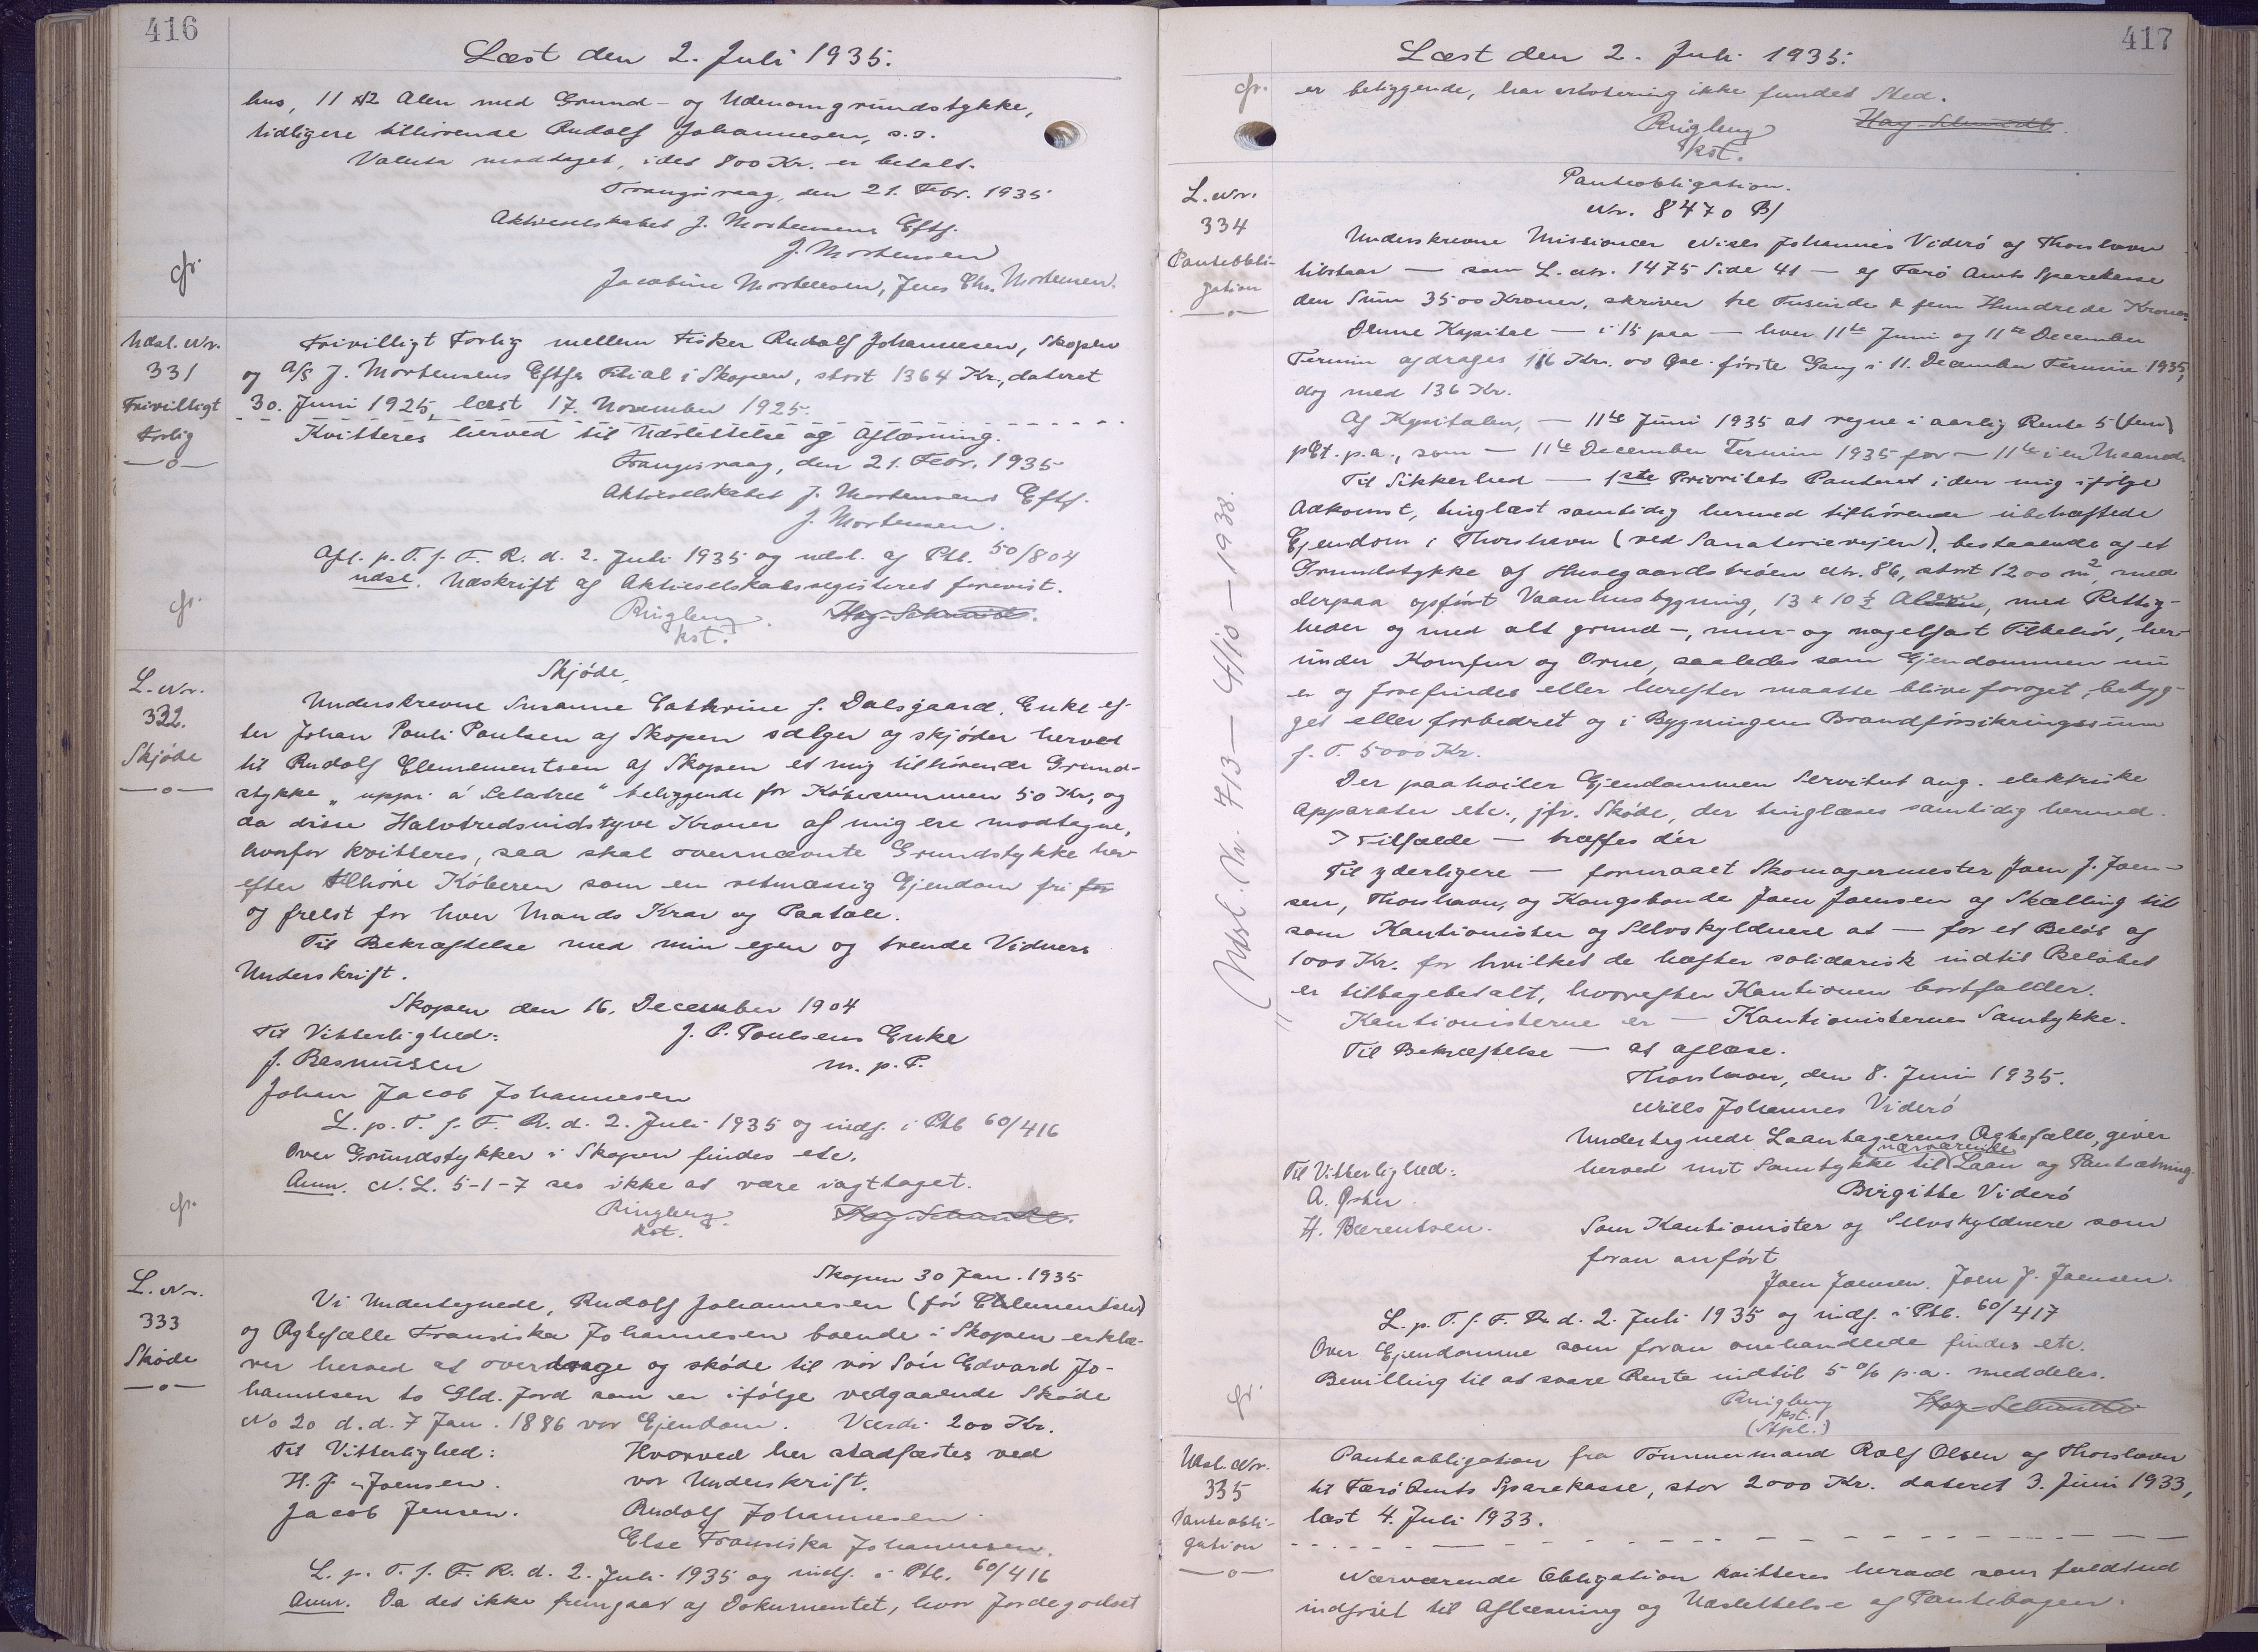 416
Læst den 2. Juli 1935.
hus, 11 x 12 Alen med Grund- og Udenomgrundstykke,
tidligere tilhørende Rudolf Johannesen, s.s.
Valuta modtaget, idet 800 Kr. er betalt.
Trangisvaag, den 21. Febr. 1935
Aktieselskabet J. Mortensens Eftf.
J. Mortensen
Jacobine Mortensen, Jens Chr. Mortensen.
cfr.
Udsl. Nr.
331
Frivilligt
Forlig
Frivilligt Forlig mellem Fisker Rudolf Johannesen, Skopen
og A/S J. Mortensens Eftfs Filial i Skopen, stort 1364 Kr., dateret
30. Juni 1925, læst 17. November 1925.
Kvitteres herved til Udslettelse og Aflæsning.
Trangisvaag, den 21. Febr. 1935
Aktieselskabet J. Mortensens Eftf.
J. Mortensen.
Afl. p. T. f. F. R. d. 2. Juli 1935 og udsl. af Ptb. 50/804
udsl. Udskrift af Aktieselskabsregisteret forevist.
cfr.
Ringberg
kst.
Hoy-Schmidt.
L. Nr.
332.
Skjøde
Skjøde,
Underskrevne Susanne Cathrine f. Dalsgaard, Enke ef-
ter Johan Pauli Paulsen af Skopen sælger og skjøder herved
til Rudolf Clementsen af Skopen et mig tilhørende Grund-
stykke " beliggende for Købesummen 50 Kr., og
da disse Halvtredsindstyve Kroner af mig ere modtagne,
hvorfor kvitteres, saa skal ovennævnte Grundstykke her-
efter tilhøre Køberen som en retmæssig Ejendom fri for
og frelst for hver Mands Krav og Paatale.
Til Bekræftelse med min egen og tvende Vidners
Underskrift.
Skopen den 16. December 1904
Til Vitterlighed: J. P. Poulsens Enke
J. Rasmussen m. p. P.
Johan Jacob Johannesen
L. p. T. f. F. R. d. 2. Juli 1935 og indf. i Ptb 60/416
Over Grundstykker i Skopen findes etc.
Anm. N. L. 5-1-7 ses ikke at være iagttaget.
cfr.
Ringberg
kst.
Hoy-Schmidt.
L. Nr.
333
Skøde
Skopen 30 Jan. 1935
Vi Undertegnede, Rudolf Johannesen (før Clementsen)
og Ægtefælle Fransiska Johannesen boende i Skopen erklæ-
rer herved at overdrage og skøde til vor Søn Edvard Jo-
hannesen to Gld. Jord som er ifølge vedgaaende Skøde
No 20 d.d. 7 Jan. 1886 vor Ejendom. Værdi 200 Kr.
Til Vitterlighed: Hvorved her stadfæstes ved
H. J. Joensen. vor Underskrift.
Jacob Jensen. Rudolf Johannesen.
Else Fransiska Johannesen.
L. p. T. f. F. R. d. 2. Juli 1935 og indf. i Ptb. 60/416
Anm. Da det ikke fremgaar af Dokumentet, hvor Jordegodset
417
Læst den 2. Juli 1935.
cfr.
er beliggende, har Notering ikke fundet Sted.
Ringberg
kst.
Hoy-Schmidt.
L. Nr.
334
Panteobli-
gation
Panteobligation.
Nr. 8470 B/
Underskrevne Missionær Niels Johannes Viderø af Thorshavn
tilstaar — som L. Nr. 1475 Side 41 — af Færø Amts Sparekasse
den Sum 3500 Kroner, skriver tre Tusinde & fem Hundrede Kroner.
Denne Kapital — i 15 paa — hver 11te Juni og 11te December
Termin afdrages 116 Kr. 00 Øre første Gang i 11. December Termin 1935,
dog med 136 Kr.
Af Kapitalen, — 11te Juni 1935 at regne i aarlig Rente 5 (fem)
pCt. p.a., som — 11te December Termin 1935 for — 11te i en Maaned.
Til Sikkerhed — 1ste Prioritets Panteret i den mig ifølge
Adkomst, tinglæst samtidig hermed tilhørende ubehæftede
Ejendom i Thorshavn (ved Sanatorievejen), bestaaende af et
Grundstykke af Husegaardstrøen Nr. 86, stort 1200 m2, med
derpaa opført Vaanhusbygning, 13 x 10 1/2 Alen, med Rettig-
heder og med alt grund-, mur- og nagelfast Tilbehør, her-
under Komfur og Ovne, saaledes som Ejendommen nu
er og forefindes eller herefter maatte blive forøget, bebyg-
get eller forbedret og i Bygningens Brandforsikringssum
f. T. 5000 Kr.
Der paahviler Ejendommen Servitut ang. elektriske
Apparater etc., jfr. Skøde, der tinglæses samtidig hermed.
I Tilfælde — træffes dér
Til yderligere — formaaet Skomagermester Joen J. Joen-
sen, Thorshavn, og Kongsbonde Joen Joensen af Skælling til
som Kautionister og Selvskyldnere at — for et Beløb af
1000 Kr. for hvilket de hæfter solidarisk indtil Beløbet
er tilbagebetalt, hvorefter Kautionen bortfalder.
Kautionisterne er — Kautionisternes Samtykke.
Til Bekræftelse — at aflæse.
Thorshavn, den 8. Juni 1935.
Niels Johannes Viderø
Undertegnede Laantagerens Ægtefælle, giver
Til Vitterlighed: herved mit Samtykke til nærværende Laan og Pantsætning.
A. Øster. Birgitte Viderø
H. Bærentsen. Som Kautionister og Selvskyldnere som
foran anført
Joen Joensen. Joen J. Joensen.
L. p. T. f. F. R. d. 2. Juli 1935 og indf. i Ptb. 60/417
Over Ejendomme som foran omhandlede findes etc.
Bevilling til at svare Rente indtil 5 % p.a. meddeles.
cfr.
Ringberg
kst.
(Stpl.)
Hoy-Schmidt
Udsl. Nr. 713 — 4/10 — 1938.
Udsl. Nr.
335
Panteobli-
gation
Panteobligation fra Tømmermand Rolf Olsen af Thorshavn
til Færø Amts Sparekasse, stor 2000 Kr. dateret 3. Juni 1933,
læst 4. Juli 1933.
Nærværende Obligation kvitteres herved som fuldtud
indfriet til Aflæsning og Udslettelse af Pantebogen.